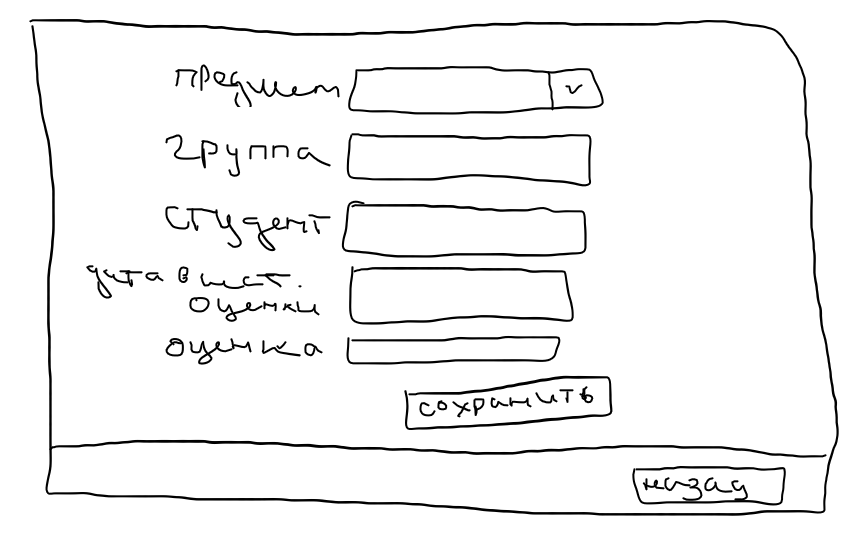 предмет
группа
студент
дата выст.
оценки
оценка
сохранить
назад